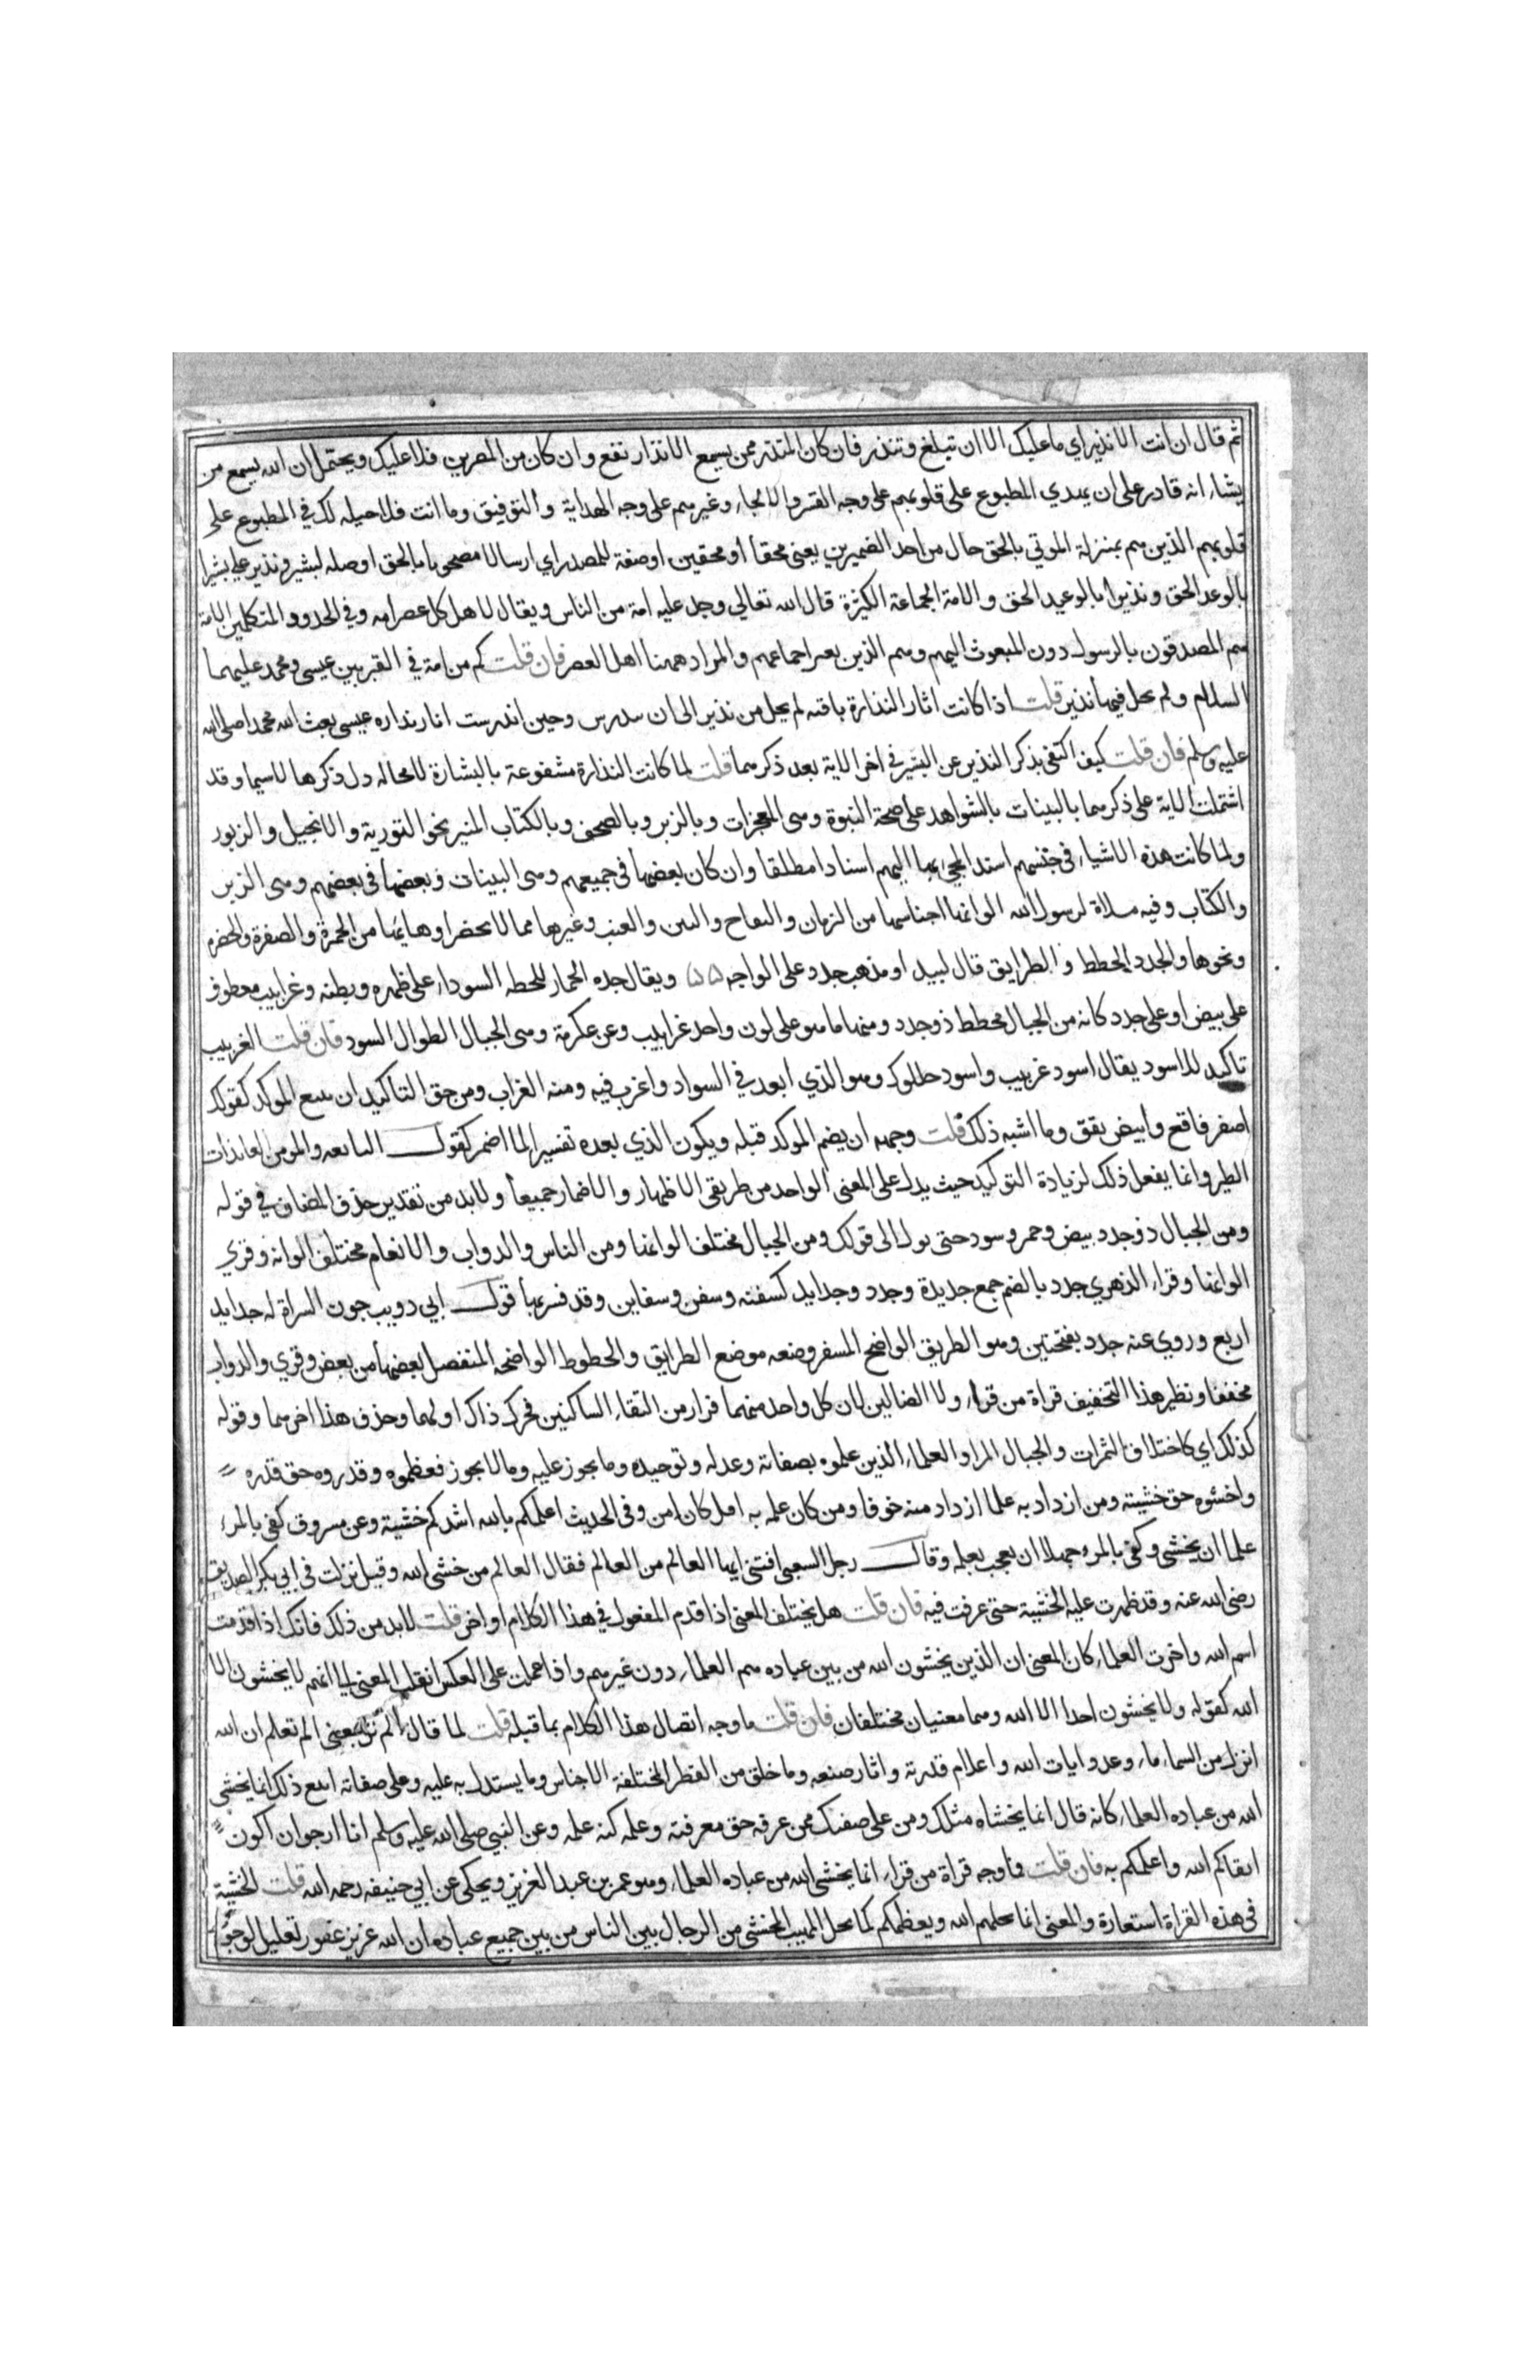 ثم قال ان انت الا نذير اي ما عليك الا ان تبلغ وتنذر فان كان المنذر ممن يسمع الانذار نفع وان كان من المصرين فلا عليك ويحتمل ان الله يسمع من
يشاء انه قادر على ان يهدي المطبوع على قلوبهم على وجه القسر والالجاء وغيرهم على وجه الهداية والتوفيق وما انت فلا حيله لك في المطبوع على
قلوبهم الذين هم بمنزلة الموتي بالحق حال من احد الضميرين يعني محقا او محقين او صفة للمصدر اي ارسالا مصحوبا بالحق او صله لبشير ونذير علي بشيرا
بالوعد الحق ونذيرا بالوعيد الحق والامة الجماعة الكثيرة قال الله تعالي وجد عليه امة من الناس ويقال لاهل كل عصر امه وفي الحدود المتكلمين الامة
هم المصدقون بالرسول دون المبعوث اليهم وهم الذين يعبر اجماعهم والمراد ههنا اهل العصر فان قلت كم من امة في القبر بين عيسى ومحمد عليهما
السلام ولم يخل فيها نذير قلت اذا كانت اثار النذارة باقيه لم يخل من نذير الى ان يندرس وحين اندرست اثار نذاره عيسى بعث الله محمدا صلى الله
عليه وسلم فان قلت كيف اكتفى بذكر النذير عن البشير في اخر الاية بعد ذكرهما قلت لما كانت النذارة مشفوعة بالبشارة لا محاله دل ذكرها لا سيما وقد
اشتملت الاية على ذكرهما بالبينات بالشواهد على صحة النبوة وهى المعجزات وبالزبر وبالصحف وبالكتاب المنير نحو التورية والانجيل والزبور
ولما كانت هذه الاشياء في جنسهم اسند المجيء بها اليهم اسنادا مطلقا وان كان بعضها في جميعهم وهى البينات وبعضها في بعضهم وهى الزبر
والكتاب وفيه مسلاة لرسول الله الوانها اجناسها من الرمان والتفاح والتين والعنب وغيرها مما لا يحصر او هيئاتها من الحمرة والصفرة والخضره
ونحوها والجدد الخطط والطرايق قال لبيد او مذهب جدد على الواحه ويقال جده الحمار للخطه السوداء على ظهره وبطنه وغرابيب معطوف
على بيض او على جدد كانه من الجبال مخطط ذو جدد ومنها ما هو على لون واحد غرابيب وعن عكرمة وهى الجبال الطوال السود فان قلت الغربيب
تاكيد للاسود يقال اسود غربيب واسود حلكوك وهو الذي ابعد في السواد واغرب فيه ومنه الغراب ومن حق التاكيد ان يتبع الموكد كقولك
اصفر فاقع وابيض يقق وما اشبه ذلك قلت وجهه ان يضم الموكد قبله ويكون الذي بعده تفسيرا لما اضمر كقول النابعه والمومن العائذات
الطير وانما يفعل ذلك لزيادة التوكيد حيث يدل على المعنى الواحد من طريقي الاظهار والاضمار جميعا ولا بد من تقدير حذف المضاف في قوله
ومن الجبال ذو جدد بيض وحمر وسود حتى يول الى قولك ومن الجبال مختلف الوانها ومن الناس والدواب والانعام مختلف الوانه وقري
الوانها وقراء الزهري جدد بالضم جمع جديدة وجدد وجدايد كسفينه وسفن وسفاين وقد فسر بها قول ابي دويب جون السراة له جدايد
اربع وروي عنه جدد بفتحتين وهو الطريق الواضح المسفر وضعه موضع الطرايق والخطوط الواضحه المنفصل بعضها من بعض وقري والدواب
مخففا ونظير هذا التخفيف قراة من قراء ولا الضالين لان كل واحد منهما فرار من التقاء الساكنين فحرك ذاك اولهما وحذف هذا اخرهما وقوله
كذلك اي كاختلاف الثمرات والجبال المراد العلماء الذين علموه بصفاته وعدله وتوحيده وما يجوز عليه وما لا يجوز فعظموه وقدروه حق قدره
واخشوه حق خشيته ومن ازداد به علما ازداد منه خوفا ومن كان علمه به اقل كان امن وفي الحديث اعلمكم بالله اشدكم خشية وعن مسروق كفى بالمرء
علما ان يخشى وكفى بالمرء جهلا ان يعجب بعلمه وقال رجل للسعبى افتني ايها العالم من العالم فقال العالم من خشى الله وقيل نزلت في ابي بكر الصديق
رضى الله عنه وقد ظهرت عليه الخشية حتى عرفت فيه فان قلت هل يختلف المعنى اذا قدم المفعول في هذا الكلام او اخر قلت لابد من ذلك فانك اذا قدمت
اسم الله واخرت العلماء كان المعنى ان الذين يخشون الله من بين عباده هم العلماء دون غيرهم واذا عملت على العكس انقلب المعنى الى انهم لا يخشون الا
الله كقوله ولا يخشون احدا الا الله وهما معنيان مختلفان فان قلت ما وجه اتصال هذا الكلام بما قبله قلت لما قال الم تر بمعنى الم تعلم ان الله
انزل من السماء ماء وعدد ايات الله واعلام قدرته واثار صنعه وما خلق من الفطر المختلفة الاجناس وما يستدل به عليه وعلى صفاته اتبع ذلك انما يخشى
الله من عباده العلماء كانه قال انما يخشاه مثلك ومن على صفتك ممن عرفه حق معرفته وعلمه كنه علمه وعن النبي صلى الله عليه وسلم انا ارجو ان اكون
اتقاكم الله واعلمكم به فان قلت فما وجه قراة من قراء انما يخشى الله من عباده العلماء وهو عمر بن عبد العزيز ويحكى عن ابي حنيفه رحمه الله قلت الخشية
في هذه القراة استعارة والمعنى انما يجلهم الله ويعظمهم كما يجل المهيب المخشى من الرجال بين الناس من بين جميع عباده ان الله عزيز غفور تعليل لوجوب